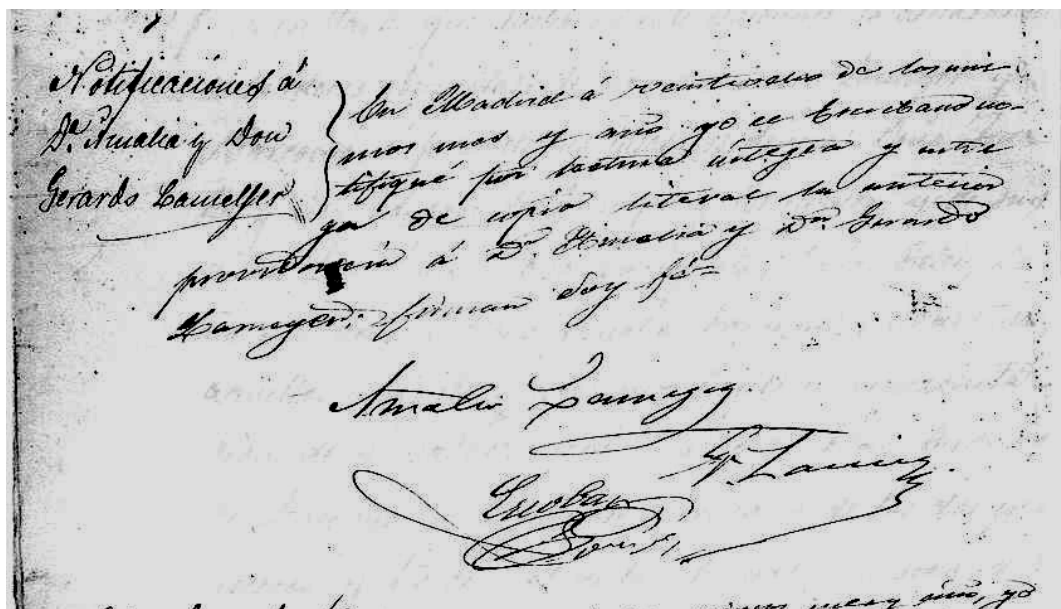 Notificaciones á
Dª. Amalia y Don
Gerardo Lameyer
En Madrid á veintisdos de los mis
mos mes y año yo el Escribano no-
tifiqué por lectura íntegra y entre
ga de copia literal la anterior
providencia á Dª. Amalia y Dn. Gerardo
Lameyer; firman doy fé=
Amalia Lameyer
G. Lameyer
Escobar
mes y año, yo